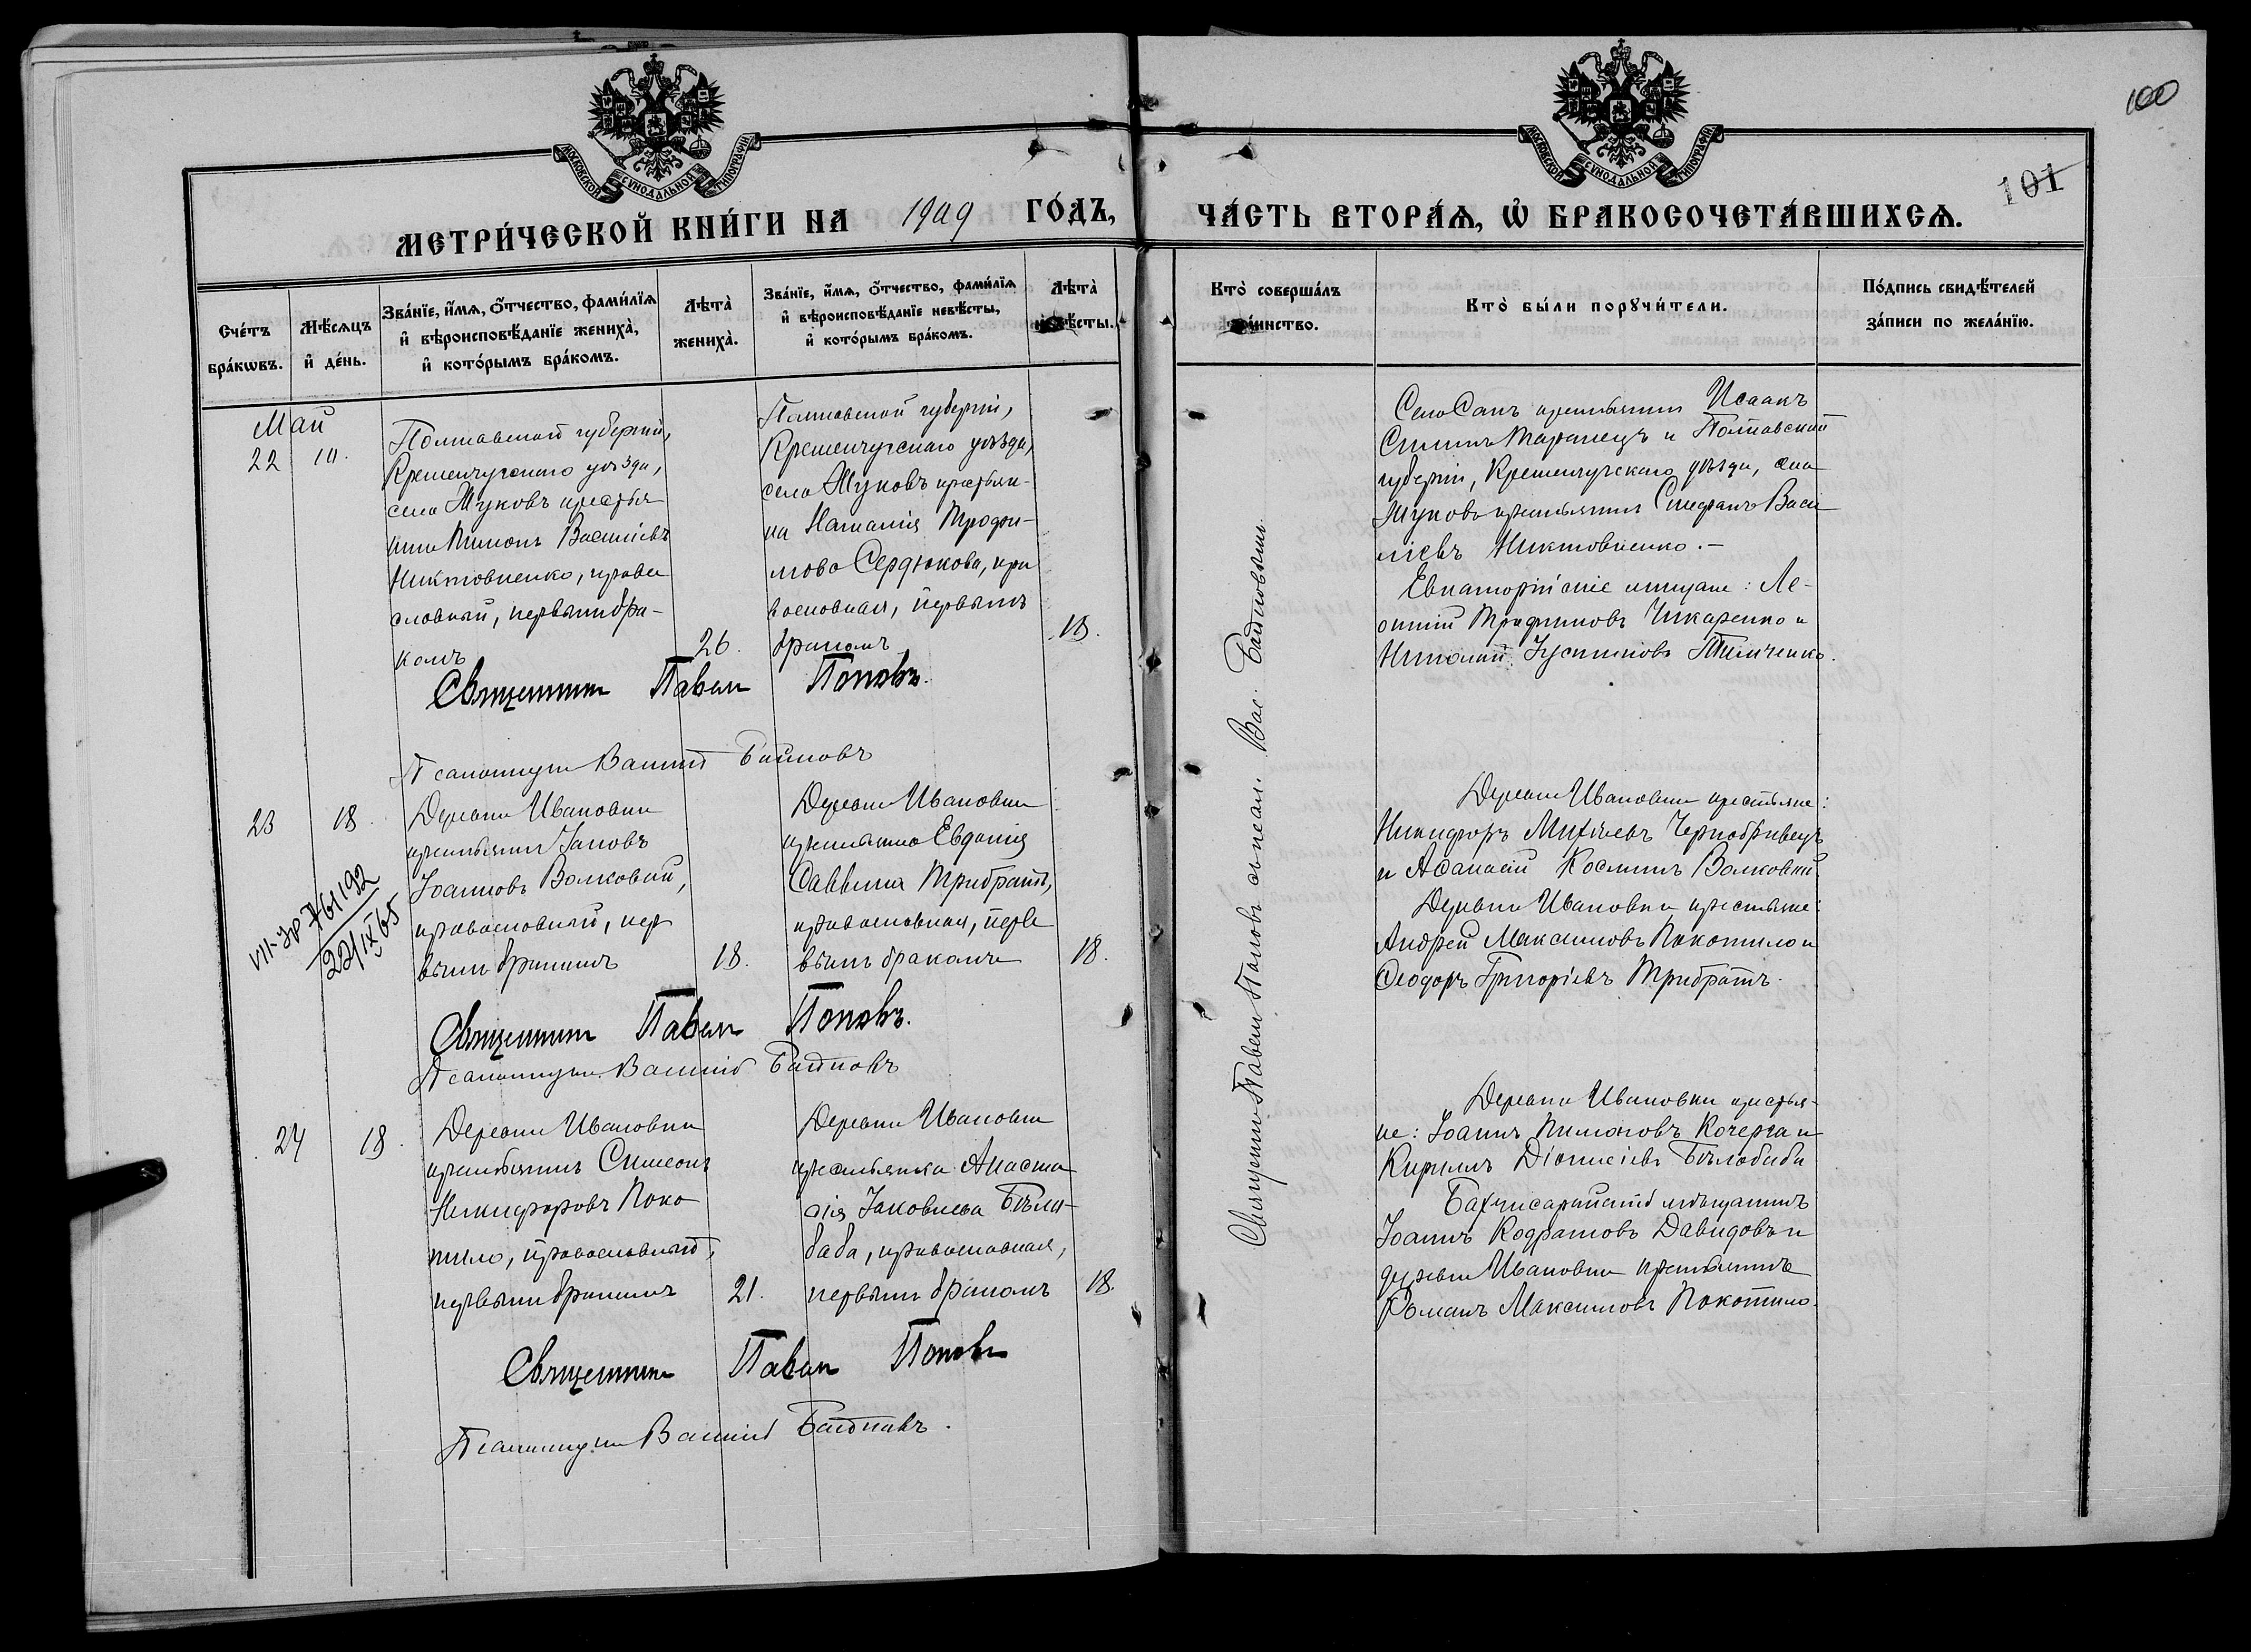 МОСКОВСКОЙ СУНОДАЛЬНОЙ ТИПОГРАФІИ
МЕТРИ́ЧЕСКОЙ КНИ́ГИ НА 1909 ГО́ДЪ,
Сче́тъ бра́кѡвъ.
Мѣ́сяцъ и҆ де́нь.
Зва́нїе, и҆́мѧ, ѻ҆́тчество, фами́лїѧ
и҆ вѣроисповѣ́данїе жениха̀,
и҆ кото́рымъ бра́комъ.
Лѣта̀ жениха̀.
Зва́нїе, и҆́мѧ, ѻ҆́тчество, фами́лїѧ
и҆ вѣроисповѣ́данїе невѣ́сты,
и҆ кото́рымъ бра́комъ.
Лѣта̀ невѣ́сты.
Май
22
Полтавской губерніи,
Кременчугскаго уѣзда,
села Жуковъ крестья
нинъ Пимонъ Василіевъ
Никтовненко, право
славный, первымъ бра-
комъ
26.
Полтавской губерніи,
Кременчугскаго уѣзда,
села Жуковъ крестьян-
ка Наталія Трофи-
мова Сердюкова, пра
вославная, первымъ
бракомъ
18.
Священникъ Павелъ Поповъ.
Псаломщикъ Василій
23
18.
Деревни Ивановки
крестьянинъ Іаковъ
Іоанновъ Волковый,
православный, пер
вымъ бракомъ
18.
Деревни Ивановки
крестьянка Евдокія
Саввина Трибратъ,
православная, пер
вымъ бракомъ
18.
761192
22/IX 65
Священникъ Павелъ Поповъ.
Псаломщикъ Василій
24
18.
Деревни Ивановки
крестьянинъ Симеонъ
Никифоровъ Поко
тило, православный,
первымъ бракомъ
21.
Деревни Ивановки
крестьянка Анаста
сія Іаковлева Бѣло-
баба, православная,
первымъ бракомъ
18.
Священникъ Павелъ Поповъ
Псаломщикъ Василій
100
101
МОСКОВСКОЙ СУНОДАЛЬНОЙ ТИПОГРАФІИ
ЧА́СТЬ ВТОРА́Ѧ, Ѽ БРАКОСОЧЕТА́ВШИХСѦ.
Кто̀ соверша́лъ та́инство.
Кто̀ бы́ли порꙋчи́тели.
По́дпись свидѣ́телей
за́писи по жела́нїю.
Священникъ Павелъ Поповъ съ псал. Вас.
Села Санъ крестьянинъ Исаакъ
Таранецъ и Полтавской
губерніи, Кременчугскаго уѣзда, села
Жукова крестьянинъ Стефанъ Васи
ліевъ Никтовненко.-
Евпаторійскіе мѣщане: Ле-
онтій Трифоновъ Чикаренко и
Николай Іустиновъ Тимченко.
Деревни Ивановки крестьяне:
Никифоръ Михаилевъ Чернобривецъ
и Аѳанасій Космінъ Волковый
Деревни Ивановки крестьяне:
Андрей Максимовъ Покотило и
Ѳеодоръ Григоріевъ Трибратъ.
Деревни Ивановки крестья-
не: Іоаннъ Пимоновъ Кочерга и
Кириллъ Діонисіевъ Бѣлобаба
Бахчисарайскій мѣщанинъ
Іоаннъ Кодратовъ Давидовъ и
деревни Ивановки крестьянинъ
Романъ Максимовъ Покотило.